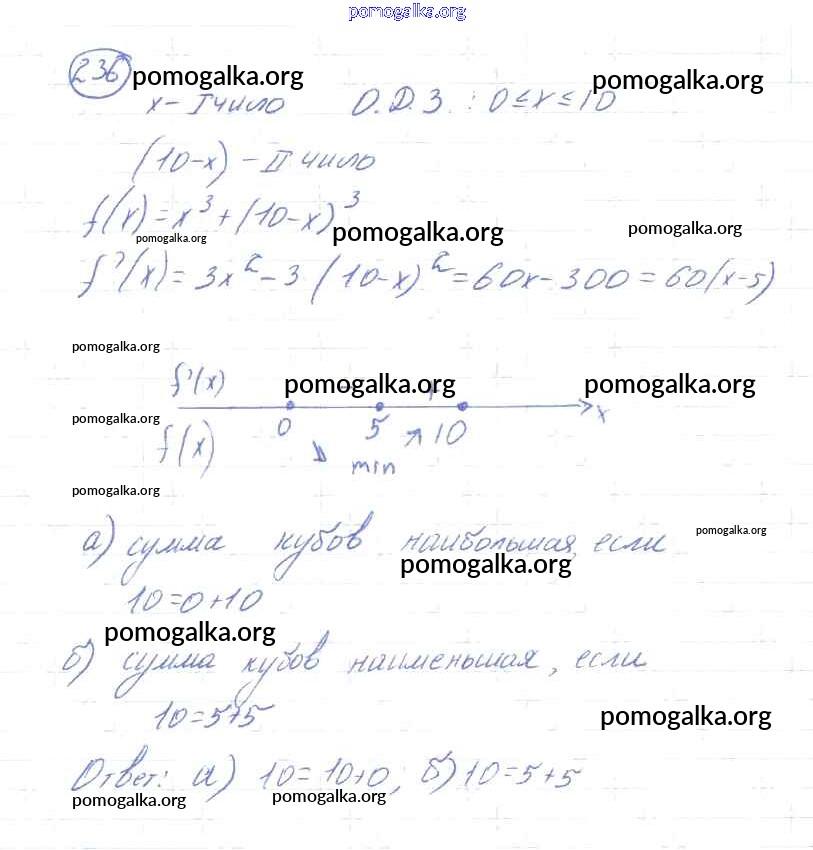 pomogalka.org
236 pomogalka.org pomogalka.org
x – I число О.Д.З. : 0 ≤ x ≤ 10
(10-x) – II число
f(x) = x³ + (10-x)³
pomogalka.org pomogalka.org pomogalka.org
f'(x) = 3x² - 3(10-x)² = 60x - 300 = 60(x-5)
pomogalka.org
f'(x) pomogalka.org + pomogalka.org
x
pomogalka.org 0 5 ↗ 10
f(x) ↘ min
pomogalka.org
pomogalka.org
а) сумма кубов наибольшая, если
pomogalka.org
10=0+10
pomogalka.org
б) сумма кубов наименьшая, если
10=5+5 pomogalka.org
Ответ: а) 10=10+0; б) 10=5+5
pomogalka.org pomogalka.org